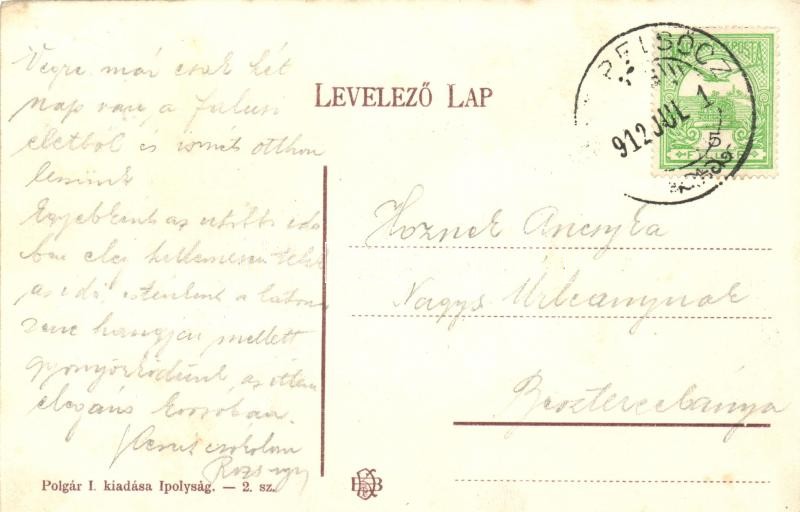 Végre már csak két
nap van a falusi
életből és ismét otthon
leszünk
Egyébként az utóbbi idő
ben elég kellemesen telik
az idő, esténként a katona
zene hangjai mellett
gyönyörködünk, az itteni
elegáns korzóban.
csókolom
LEVELEZŐ LAP
PELSŐCZ
912 JUL 1
5
Hoznek Ancsyka
Nagys Urleánynak
Beszterczebánya
Polgár I. kiadása Ipolyság. — 2. sz.